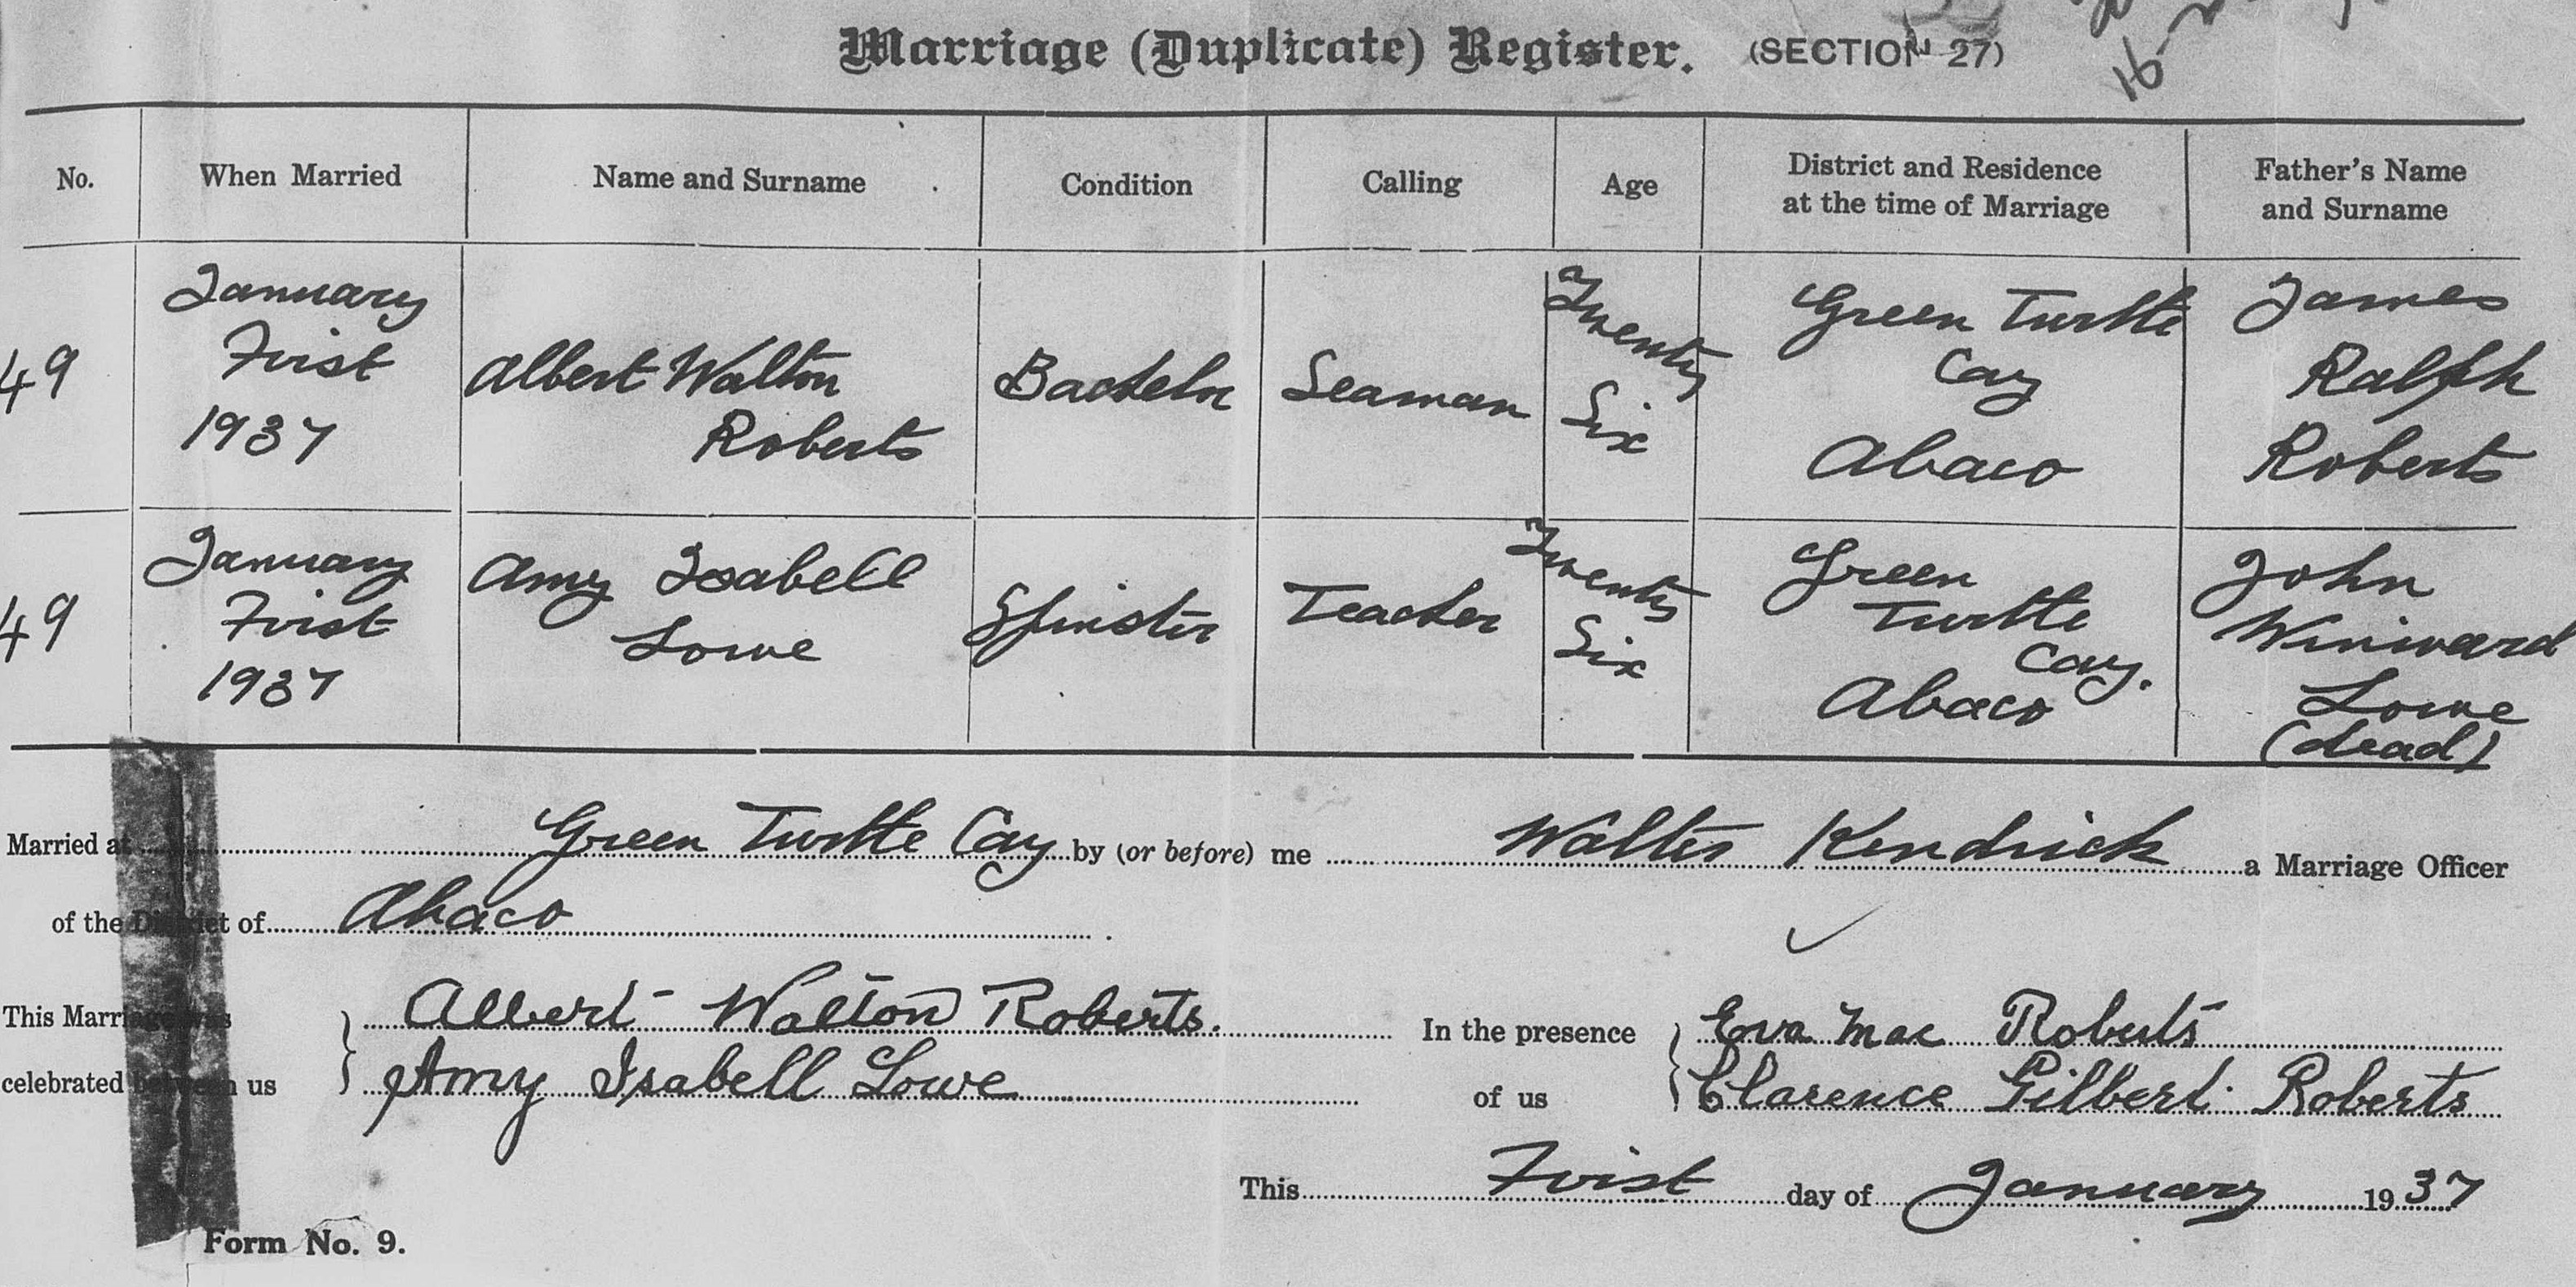 Marriage (Duplicate) Register. (SECTION 27)
16-2
No. When Married Name and Surname Condition Calling Age District and Residence at the time of Marriage Father's Name and Surname
49 January First 1937 Albert Walton Roberts Bachelor Seaman Twenty Six Green Turtle Cay Abaco James Ralph Roberts
49 January First 1937 Amy Isabell Lowe Spinster Teacher Twenty Six Green Turtle Cay. Abaco John Winward Lowe (dead)
Married at Green Turtle Cay by (or before) me Walter Kendrick a Marriage Officer
of the District of Abaco
This Marriage was Albert Walton Roberts. In the presence Eva Mae Roberts
celebrated between us Amy Isabell Lowe of us Clarence Gilbert Roberts
This First day of January 1937
Form No. 9.